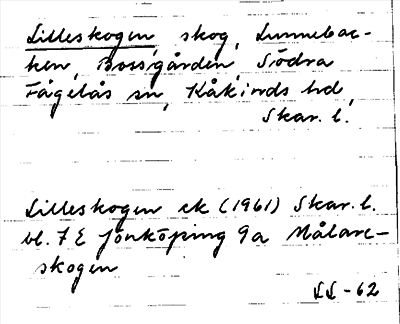 Lilleskogen, skog, Lunnebac-
ken, Bossgården, Södra
Fågelås sn, Kåkinds hd,
Skar. l.
Lilleskogen ek (1961) Skar. l.
bl. 7 E Jönköping 9a Målare-
skogen
LL - 62